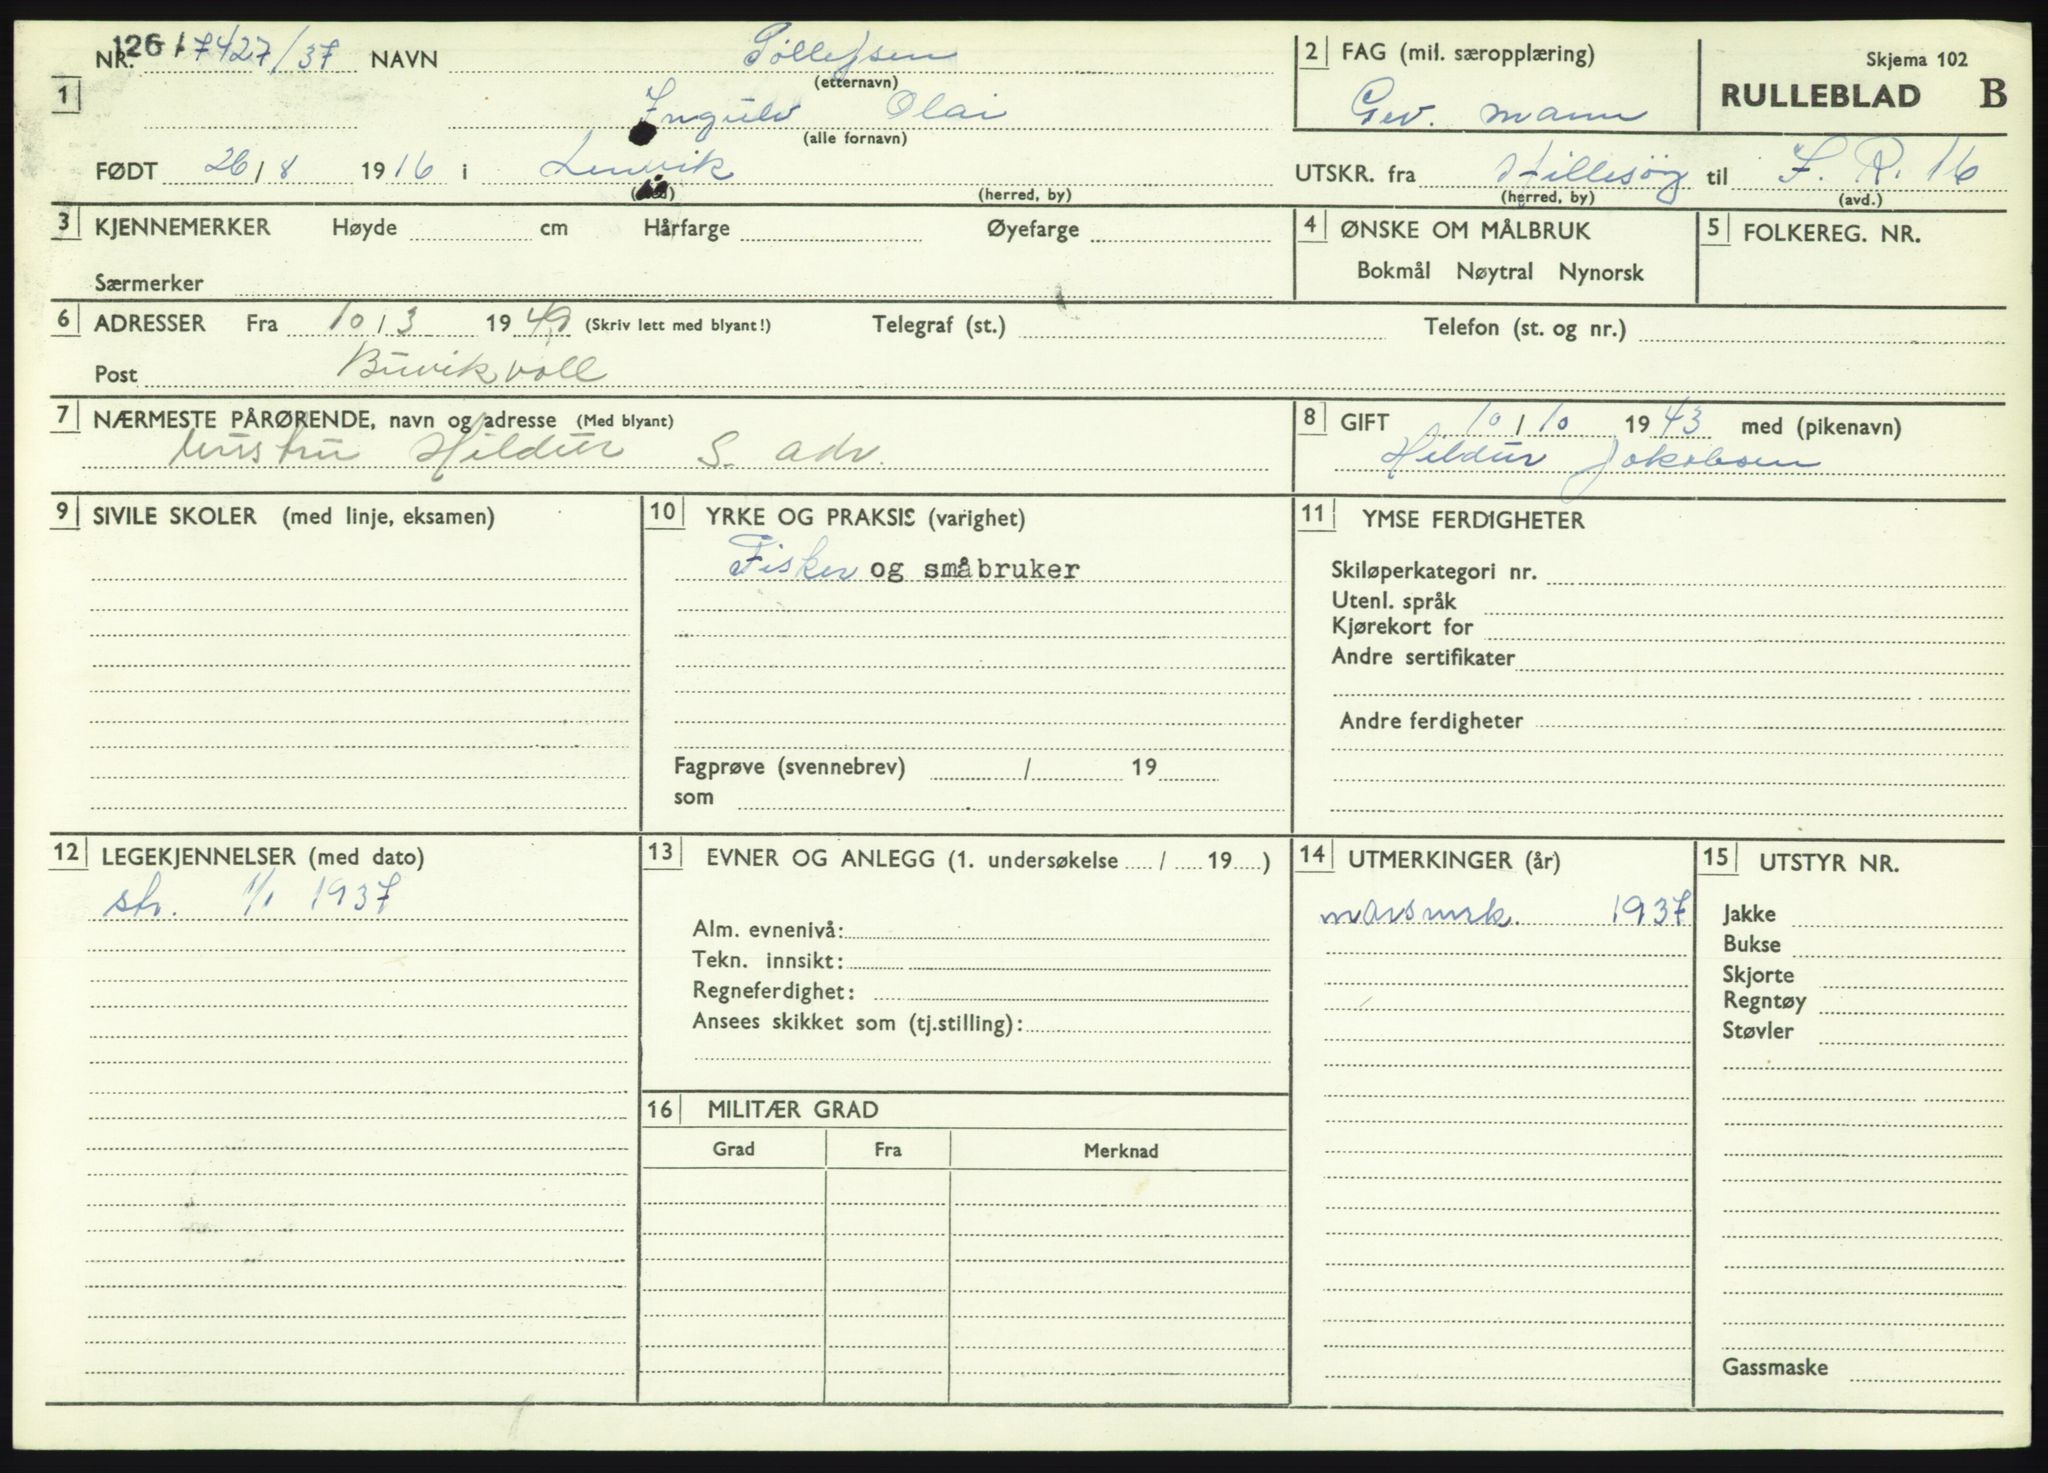 NR. 126/7427/37 NAVN Tollefsen
(etternavn)
1
Ingulv Olai
(alle fornavn)
FØDT 26/8 1916 i Lenvik
(sted) (herred, by)
2 FAG (mil. særopplæring)
Gev. mann
Skjema 102
RULLEBLAD B
UTSKR. fra Hillesøy til I. R. 16
(herred, by) (avd.)
3 KJENNEMERKER Høyde cm Hårfarge Øyefarge
Særmerker
4 ØNSKE OM MÅLBRUK
Bokmål Nøytral Nynorsk
5 FOLKEREG. NR.
6 ADRESSER Fra 10/3 1949 (Skriv lett med blyant!) Telegraf (st.) Telefon (st. og nr.)
Post Buvikvoll
7 NÆRMESTE PÅRØRENDE, navn og adresse (Med blyant)
hustru Hildur S. adr.
8 GIFT 10/10 1943 med (pikenavn)
Hildur Jakobsen
9 SIVILE SKOLER (med linje, eksamen)
10 YRKE OG PRAKSIS (varighet)
Fisker og småbruker
Fagprøve (svennebrev) / 19
som
11 YMSE FERDIGHETER
Skiløperkategori nr.
Utenl. språk
Kjørekort for
Andre sertifikater
Andre ferdigheter
12 LEGEKJENNELSER (med dato)
str. 1/1 1937
13 EVNER OG ANLEGG (1. undersøkelse / 19 )
Alm. evnenivå:
Tekn. innsikt:
Regneferdighet:
Ansees skikket som (tj.stilling):
14 UTMERKINGER (år)
marsmrk. 1937
15 UTSTYR NR.
Jakke
Bukse
Skjorte
Regntøy
Støvler
Gassmaske
16 MILITÆR GRAD
Grad Fra Merknad